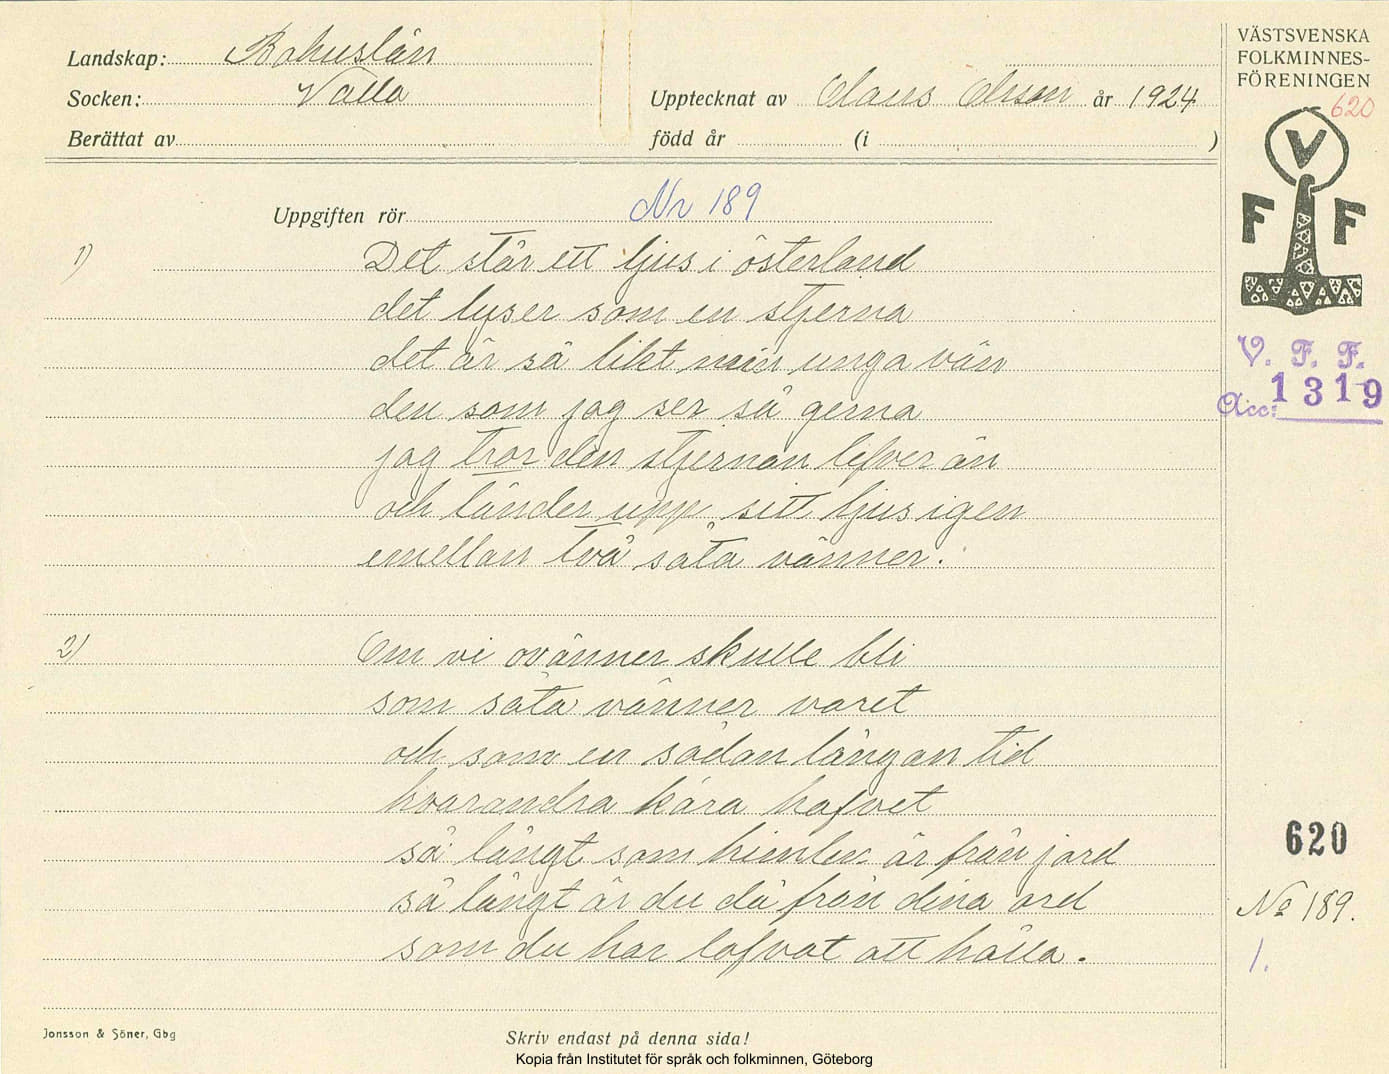 Landskap: Bohuslän
Socken: Valla
Upptecknat av Claus Olsson år 1924
Berättat av
född år (i )
VÄSTSVENSKA
FOLKMINNES-
FÖRENINGEN
620
V
F F
V. F. F.
Acc: 1319
Uppgiften rör Nr 189
1) Det står ett ljus i österland
det lyser som en stjerna
det är så likt min unga vän
den som jag ser så gerna
jag tror den stjernan lefver än
och tänder upp sitt ljus igen
emellan två såta vänner.
2) Om vi ovänner skulle bli
som såta vänner varet
och som en sådan långan tid
hvarandra kära hafvet
så långt som himlen är från jord
så långt är du då från dina ord
som du har lofvat att hålla.
620
No 189.
1.
Jonsson & Söner, Gbg
Skriv endast på denna sida!
Kopia från Institutet för språk och folkminnen, Göteborg